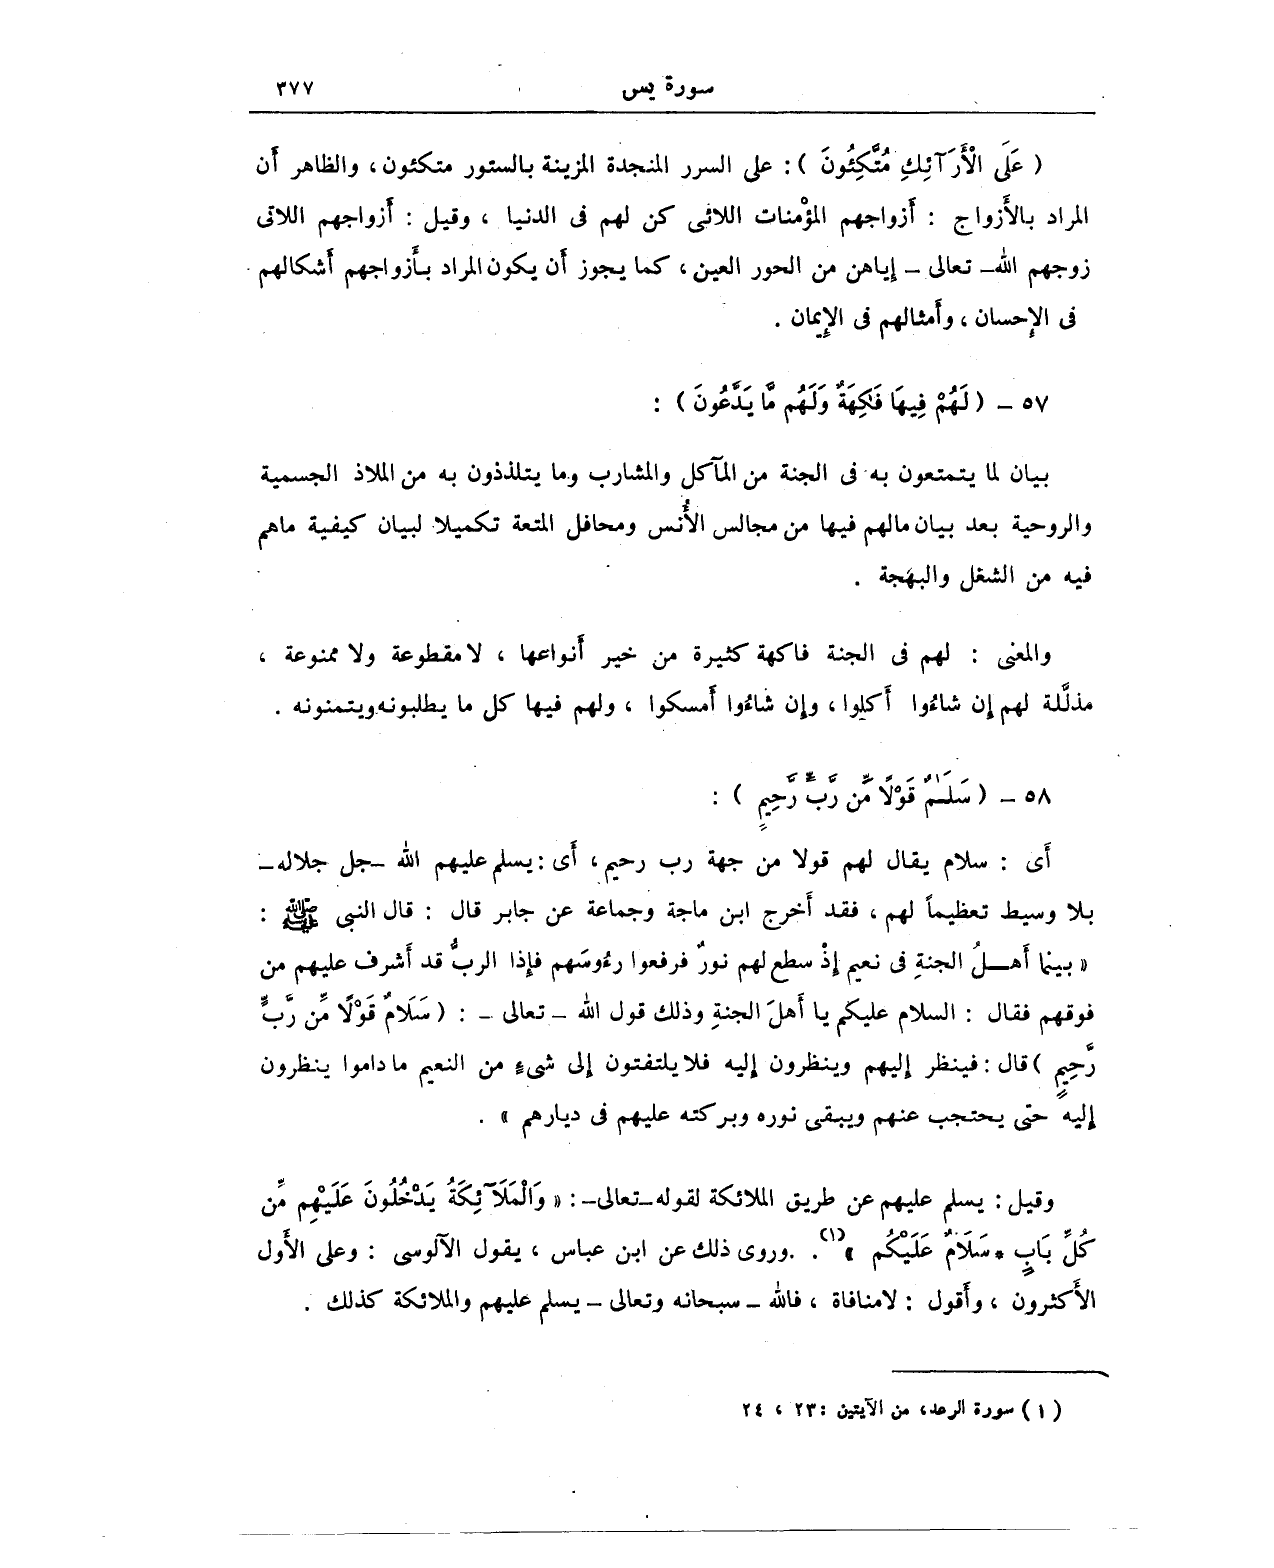 سورة يس ٣٧٧
( عَلَى الْأَرَآئِكِ مُتَّكِئُونَ ) : على السرر المنجدة المزينة بالستور متكئون ، والظاهر أَن
المراد بالأَزواج : أَزواجهم المؤْمنات اللائى كن لهم فى الدنيا ، وقيل : أَزواجهم اللاتى
زوجهم الله ـ تعالى ـ إياهن من الحور العين ، كما يجوز أَن يكون المراد بأَزواجهم أَشكالهم
فى الإحسان ، وأَمثالهم فى الإيمان .
٥٧ ـ ( لَهُمْ فِيهَا فَاكِهَةٌ وَلَهُم مَّا يَدَّعُونَ ) :
بيان لما يتمتعون به فى الجنة من المآكل والمشارب وما يتلذذون به من الملاذ الجسمية
والروحية بعد بيان مالهم فيها من مجالس الأُنس ومحافل المتعة تكميلا لبيان كيفية ماهم
فيه من الشغل والبهَجة .
والمعنى : لهم فى الجنة فاكهة كثيرة من خير أَنواعها ، لا مقطوعة ولا ممنوعة ،
مذلَّلة لهم إن شاءُوا أَكلوا ، وإن شاءُوا أَمسكوا ، ولهم فيها كل ما يطلبونه ويتمنونه .
٥٨ ـ ( سَلَـٰمٌ قَوْلًا مِّن رَّبٍّ رَّحِيمٍ ) :
أَى : سلام يقال لهم قولا من جهة رب رحيم ، أَى : يسلم عليهم الله ـ جل جلاله ـ
بلا وسيط تعظيماً لهم ، فقد أَخرج ابن ماجة وجماعة عن جابر قال : قال النبى ﷺ :
« بينما أَهـلُ الجنةِ فى نعيم إذْ سطع لهم نورٌ فرفعوا رءُوسَهم فإذا الربُّ قد أَشرف عليهم من
فوقهم فقال : السلام عليكم يا أَهلَ الجنةِ وذلك قول الله ـ تعالى ـ : ( سَلَامٌ قَوْلًا مِّن رَّبٍّ
رَّحِيمٍ ) قال : فينظر إليهم وينظرون إليه فلا يلتفتون إلى شىءٍ من النعيم ما داموا ينظرون
إليه حتى يحتجب عنهم ويبقى نوره وبركته عليهم فى ديارهم » .
وقيل : يسلم عليهم عن طريق الملائكة لقوله ـ تعالى ـ : « وَالْمَلَآئِكَةُ يَدْخُلُونَ عَلَيْهِم مِّن
كُلِّ بَابٍ * سَلَامٌ عَلَيْكُم »(١) . وروى ذلك عن ابن عباس ، يقول الآلوسى : وعلى الأَول
الأَكثرون ، وأَقول : لا منافاة ، فالله ـ سبحانه وتعالى ـ يسلم عليهم والملائكة كذلك .
( ١ ) سورة الرعد، من الآيتين : ٢٣ ، ٢٤